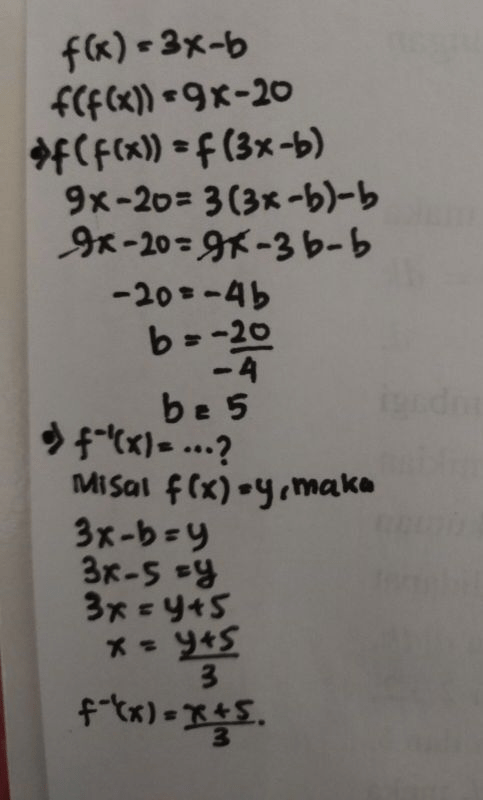 f(x) = 3x-b
f(f(x)) = 9x-20
⇒ f(f(x)) = f(3x-b)
9x-20 = 3(3x-b)-b
9x-20 = 9x-3b-b
-20 = -4b
b = -20/-4
b = 5
⇒ f⁻¹(x) = ...?
Misal f(x) = y, maka
3x-b = y
3x-5 = y
3x = y+5
x = y+5/3
f⁻¹(x) = x+5/3.